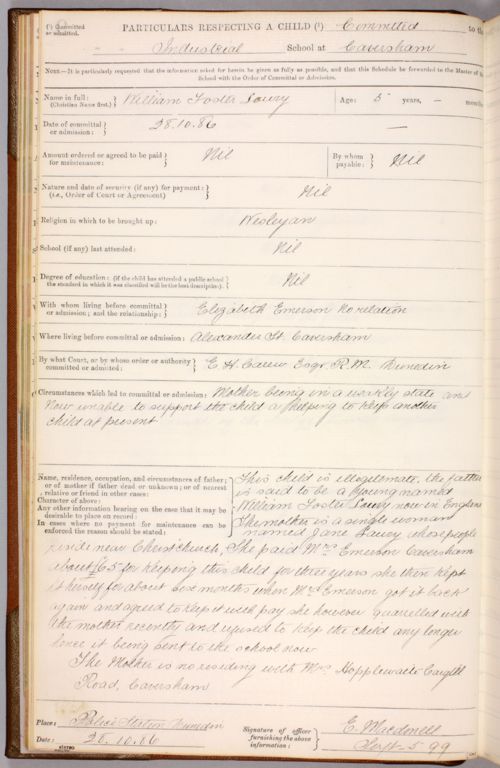 (¹) Committed or admitted.
PARTICULARS RESPECTING A CHILD (¹) Committed to the
Industrial School at Caversham
NOTE.—It is particularly requested that the information asked for herein be given as fully as possible, and that this Schedule be forwarded to the Master of the
School with the Order of Committal or Admission.
Name in full: (Christian Name first.) William Foster Lowry Age: 5 years, — months
Date of committal or admission: 28.10.86 —
Amount ordered or agreed to be paid for maintenance: Nil By whom payable: Nil
Nature and date of security (if any) for payment: (i.e., Order of Court or Agreement) Nil
Religion in which to be brought up: Wesleyan
School (if any) last attended: Nil
Degree of education: (if the child has attended a public school the standard in which it was classified will be the best description). Nil
With whom living before committal or admission; and the relationship: Elizabeth Emerson No relation
Where living before committal or admission: Alexander St. Caversham
By what Court, or by whose order or authority committed or admitted: E. H. Carew Esqr. R.M. Dunedin
Circumstances which led to committal or admission: Mother being in a weakly state and
Now unable to support the child & helping to keep another
child at present
Name, residence, occupation, and circumstances of father;
or of mother if father dead or unknown; or of nearest
relative or friend in other cases:
Character of above:
Any other information bearing on the case that it may be
desirable to place on record:
In cases where no payment for maintenance can be
enforced the reason should be stated:
This child is illegitimate. the father
is said to be a young named
William Foster Lowry now in England
The mother is a single woman
named Jane Lowry whose people
reside near Christchurch, She paid Mrs Emerson Caversham
about £65 for keeping this child for three years she then kept
it herself for about six months when Mrs Emerson got it back
again and agreed to keep it with pay she however quarrelled with
the mother recently and refused to keep the child any longer
hence it being sent to the school now
The Mother is no residing with Mrs Hopplewaite Cargill
Road, Caversham
Place: Police Station Dunedin
Date: 28.10.86
Signature of officer furnishing the above information: E. Macdonell
Sergt. 5 99